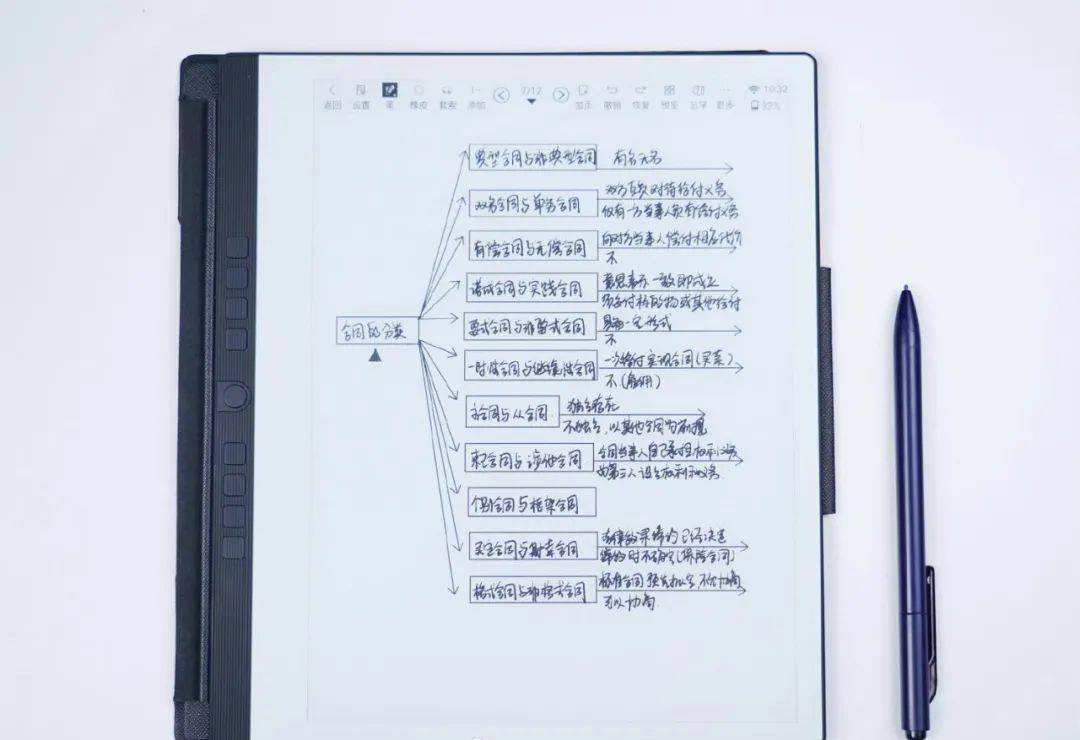 返回 设置 笔 橡皮 套索 添加 7/12 加页 撤销 恢复 预览 更多 10:32
92%
典型合同与非典型合同 有名无名
双务合同与单务合同 双方互负对待给付义务
仅有一方当事人负有给付义务
有偿合同与无偿合同 向对方当事人偿付相应代价
不
诺成合同与实践合同 意思表示一致即成立
须交付标的物或其他给付
要式合同与非要式合同 一定形式
不
合同的分类
一时性合同与继续性合同 一次给付实现合同(买卖)
不(雇佣)
主合同与从合同 独立存在
不独立,以其他合同为前提
束己合同与涉他合同 合同当事人自己承担权利义务
为第三人设立权利和义务
合同与框架合同
合同与射幸合同 缔约已经决定
缔约时不确定(保险合同)
格式合同与非格式合同 标准合同 预先拟定,不允协商
可以协商